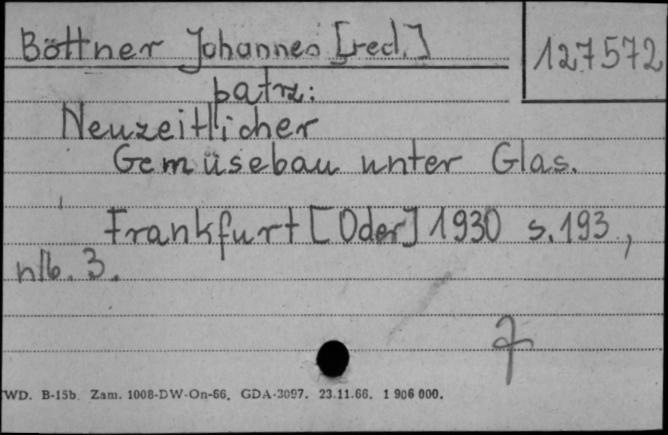 Böttner Johannes [red.]
127572
patrz:
Neuzeitlicher
Gemüsebau unter Glas.
Frankfurt [Oder] 1930 s. 193,
nlb. 3.
WD. B-15b. Zam. 1008-DW-On-66. GDA-3097. 23.11.66. 1 906 000.